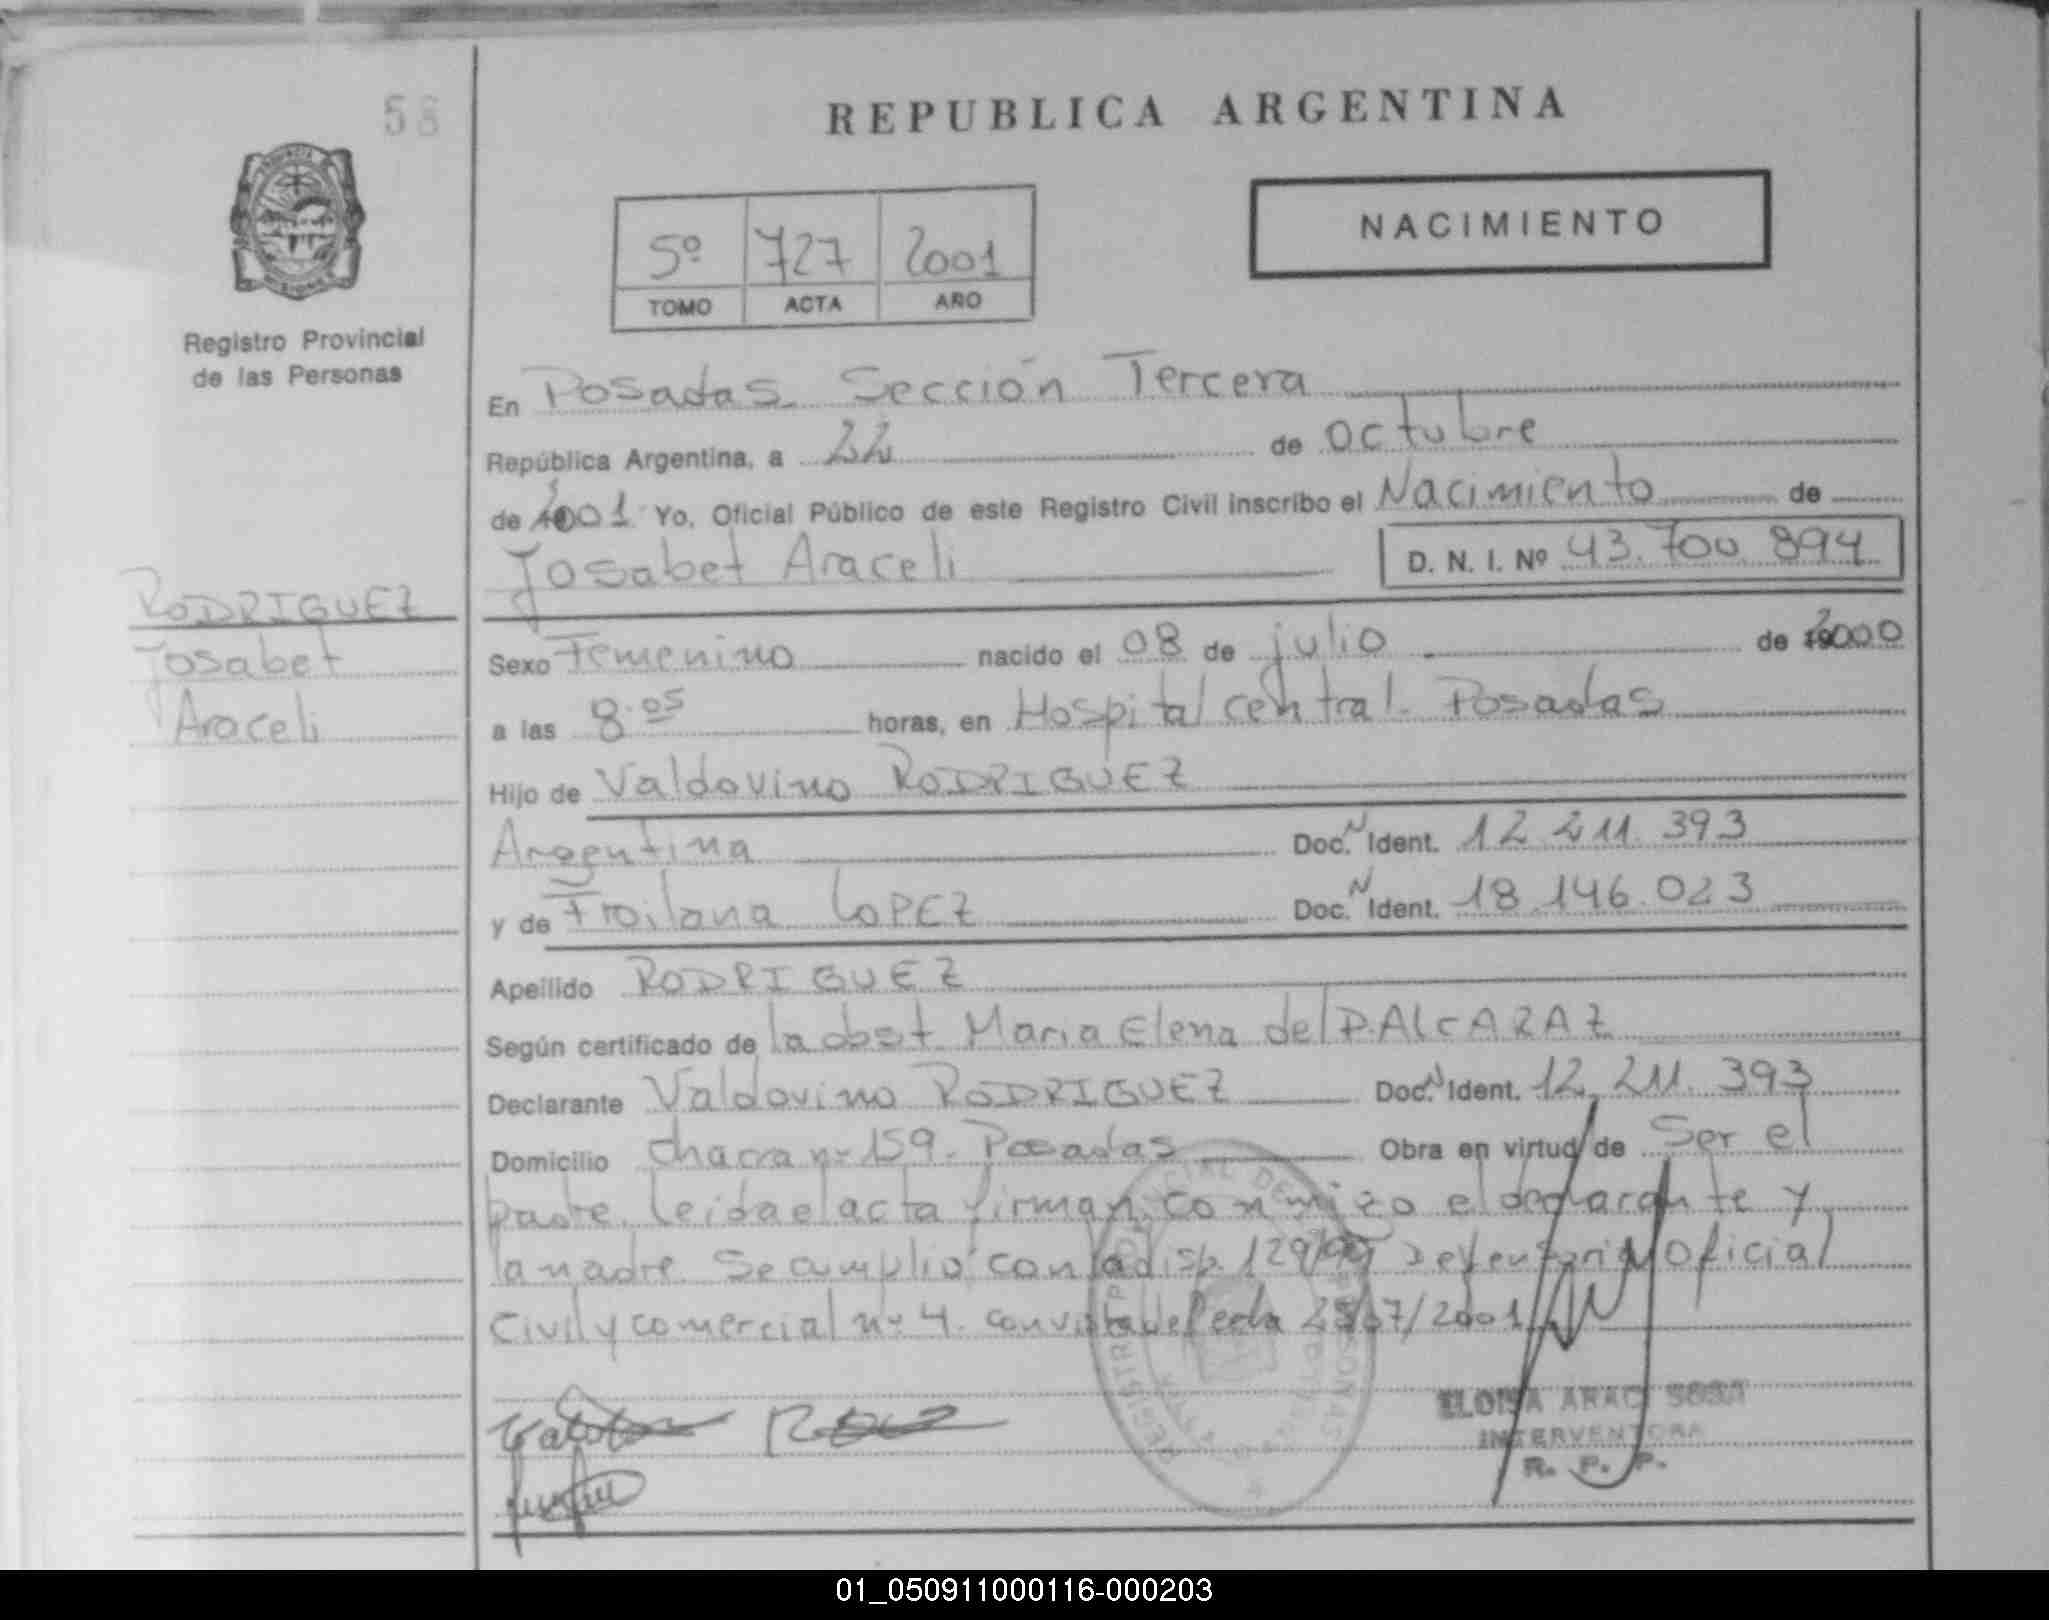 58
REPUBLICA ARGENTINA
NACIMIENTO
5º 727 2001
TOMO ACTA AÑO
Registro Provincial
de las Personas
En Posadas Sección Tercera
República Argentina, a 22 de octubre
de 2001 Yo, Oficial Público de este Registro Civil inscribo el Nacimiento de
Josabet Araceli D. N. I. Nº 43.700.894
RODRIGUEZ
Josabet
Araceli
Sexo Femenino nacido el 08 de julio de 2000
a las 8.05 horas, en Hospital central Posadas
Hijo de Valdovino RODRIGUEZ
Argentina Doc. N Ident. 12.211.393
y de Froilana LOPEZ Doc. N Ident. 18.146.023
Apellido RODRIGUEZ
Según certificado de la obst Maria Elena del P. ALCARAZ
Declarante Valdovino RODRIGUEZ Doc. N Ident. 12.211.393
Domicilio chacra nº 159. Posadas Obra en virtud de Ser el
padre. leida el acta firman conmigo el declarante y
la madre. Se cumplio con la disp. 129/ Defensoria Oficial
Civil y comercial nº 4. con vista de fecha /07/2001
ELOISA ARACI SOSA
INTERVENTORA
R. P. P.
01_050911000116-000203